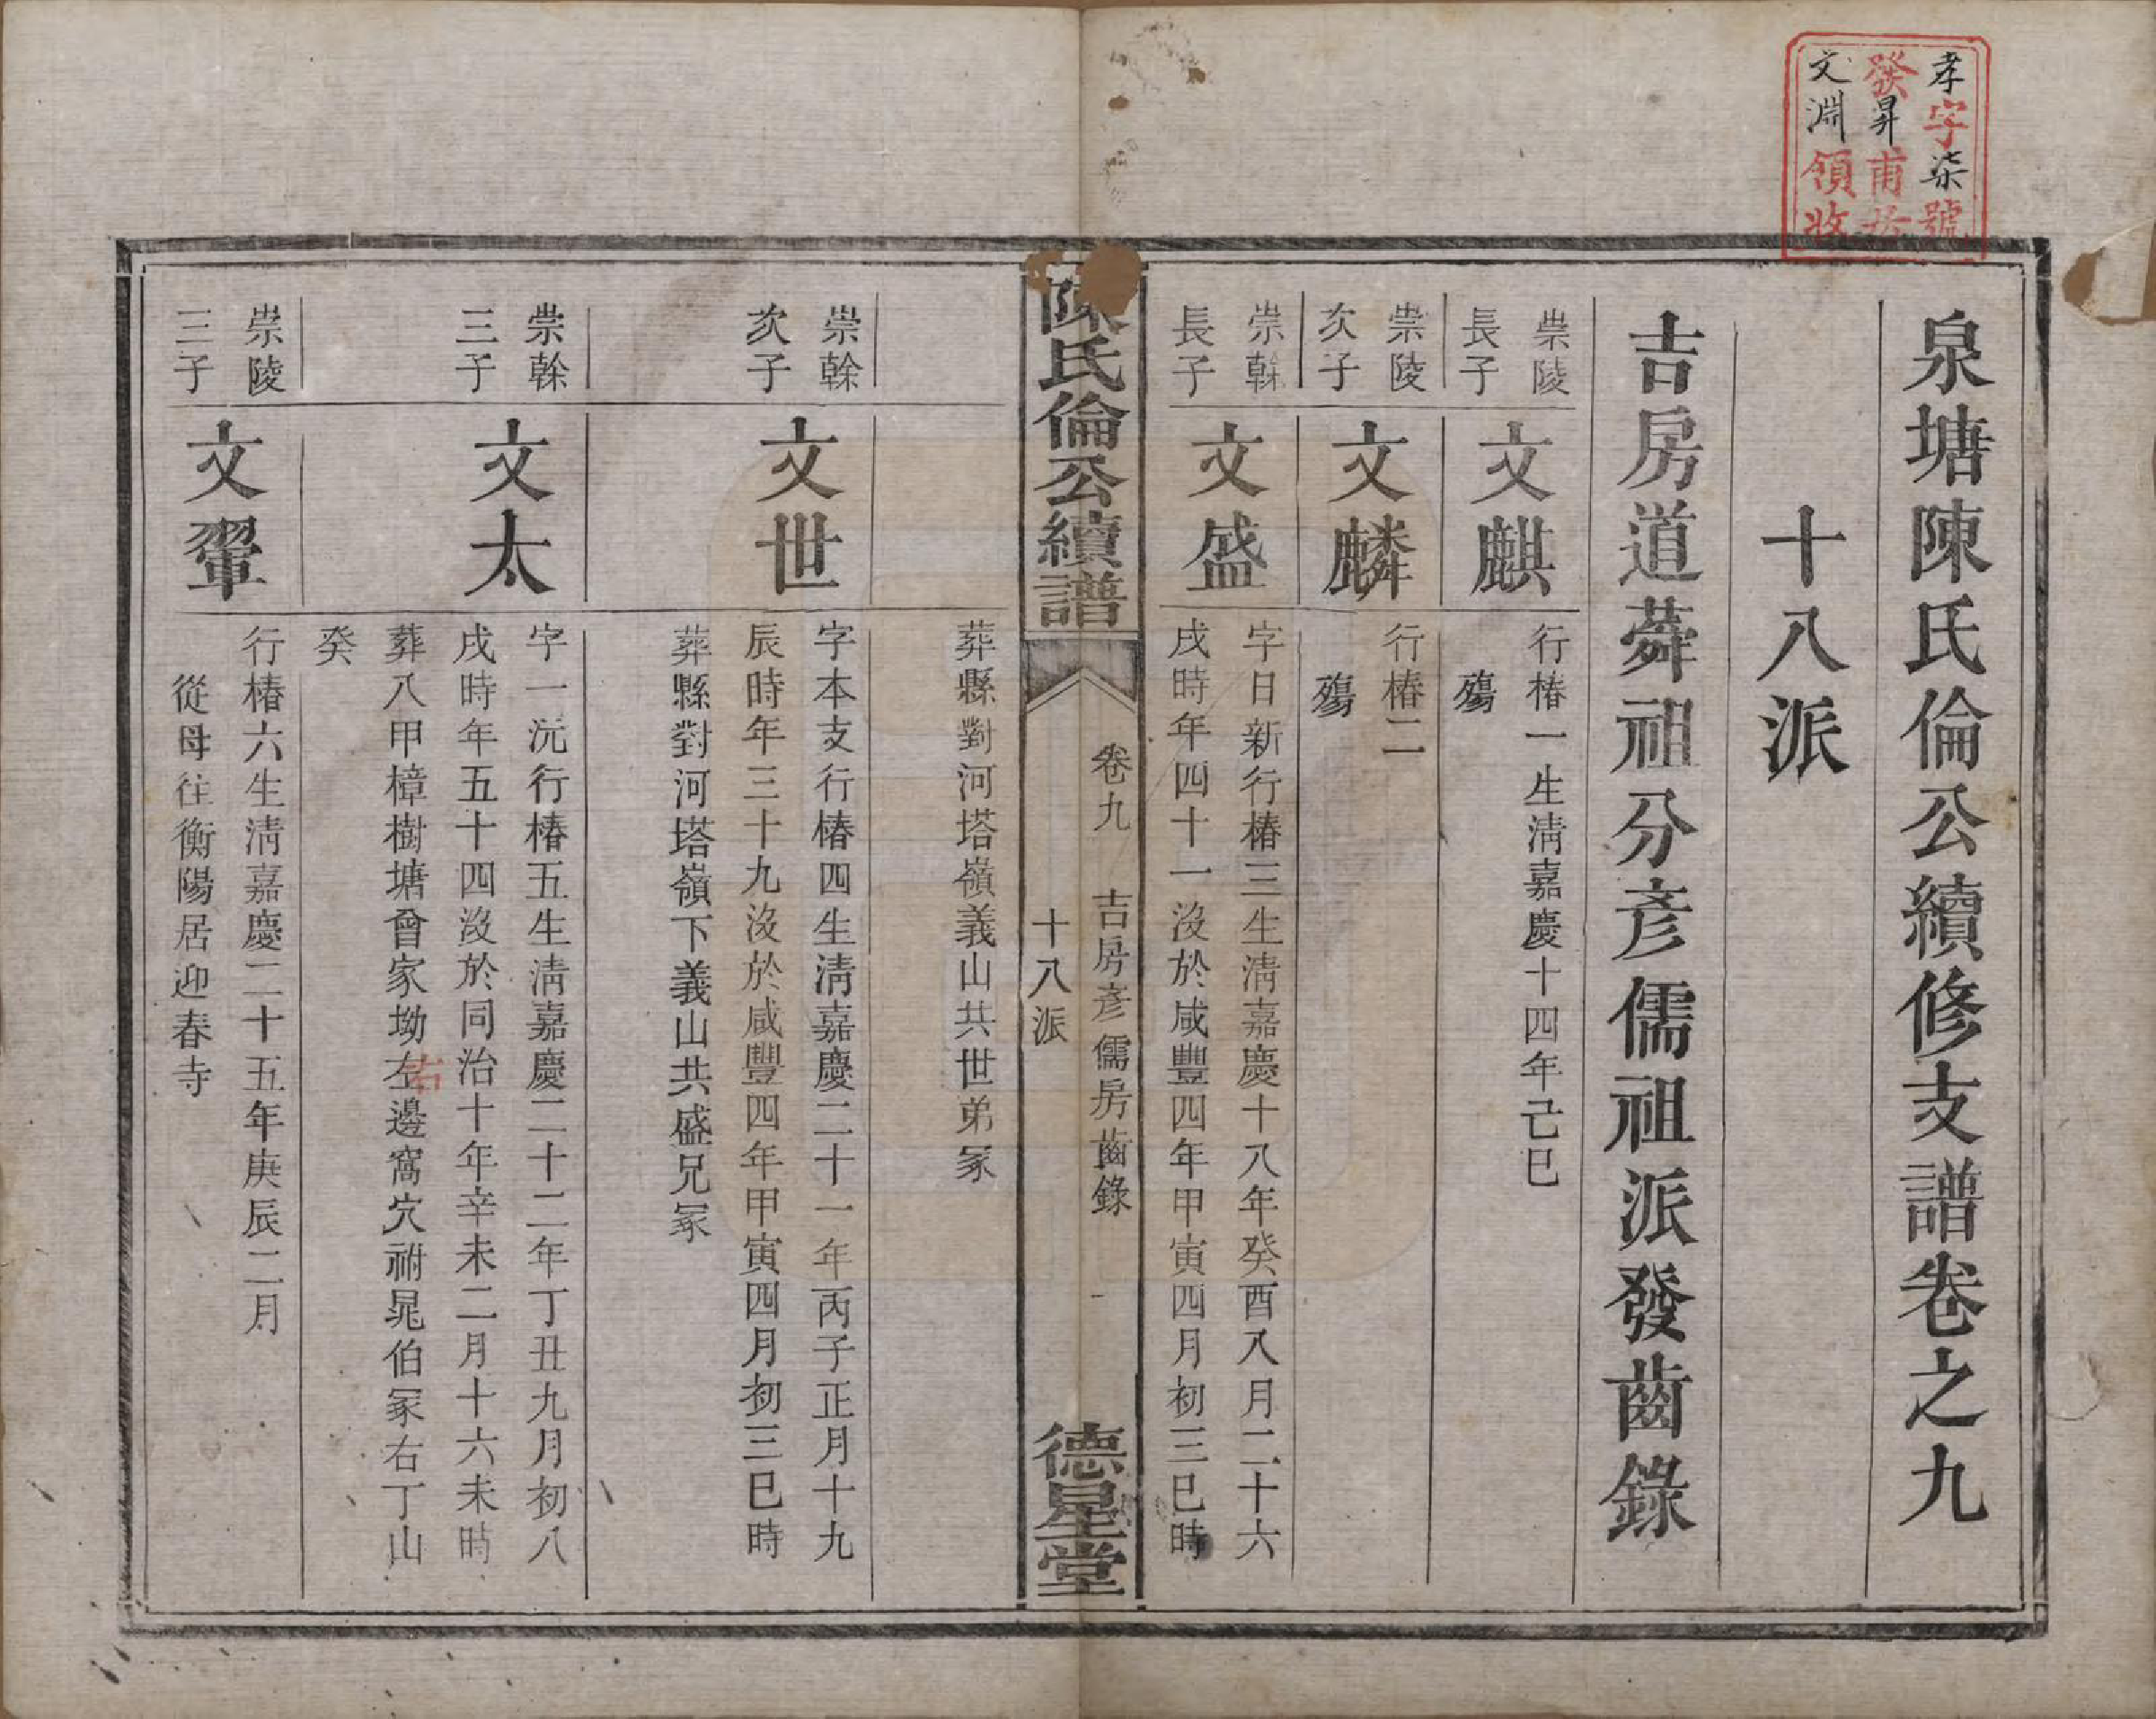 孝字柒號
發昇甫房
文淵領收
泉塘陳氏倫公續修支譜卷之九
十八派
吉房道蕣祖分彥儒祖派發齒錄
崇陵
長子
文麒
行椿一生淸嘉慶十四年己巳
殤
崇陵
次子
文麟
行椿二
殤
崇榦
長子
文盛
字日新行椿三生淸嘉慶十八年癸酉八月二十六
戌時年四十一沒於咸豐四年甲寅四月初三巳時
陳氏倫公續譜
卷九
吉房彥儒房齒錄
十八派
一
德星堂
葬縣對河塔嶺義山共世弟冢
崇榦
次子
文世
字本支行椿四生淸嘉慶二十一年丙子正月十九
辰時年三十九沒於咸豐四年甲寅四月初三巳時
葬縣對河塔嶺下義山共盛兄冢
崇榦
三子
文太
字一沅行椿五生淸嘉慶二十二年丁丑九月初八
戌時年五十四沒於同治十年辛未二月十六未時
葬八甲樟樹塘曾家坳左邊窩穴祔晁伯冢右丁山
右
癸
崇陵
三子
文翬
行椿六生淸嘉慶二十五年庚辰二月
從母往衡陽居迎春寺